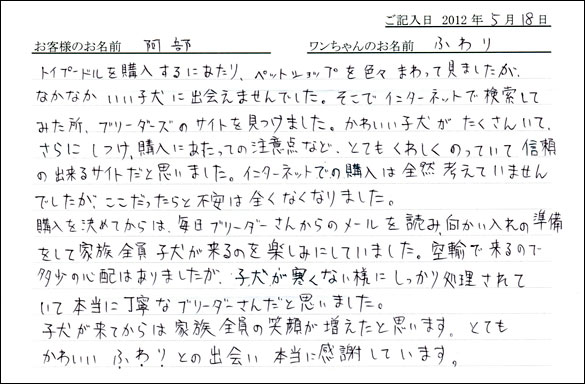 ご記入日 2012年5月18日
お客様のお名前 阿部 ワンちゃんのお名前 ふわり
トイプードルを購入するにあたり、ペットショップを色々まわって見ましたが、
なかなかいい子犬に出会えませんでした。そこでインターネットで検索して
みた所、ブリーダーズのサイトを見つけました。かわいい子犬がたくさんいて、
さらにしつけ、購入にあたっての注意点など、とてもくわしくのっていて信頼
の出来るサイトだと思いました。インターネットでの購入は全然考えていません
でしたが、ここだったらと不安は全くなくなりました。
購入を決めてからは、毎日ブリーダーさんからのメールを読み、向かい入れの準備
をして家族全員子犬が来るのを楽しみにしていました。空輸で来るので
多少の心配はありましたが、子犬が寒くない様にしっかり処理されて
いて本当に丁寧なブリーダーさんだと思いました。
子犬が来てからは家族全員の笑顔が増えたと思います。とても
かわいいふわりとの出会い本当に感謝しています。